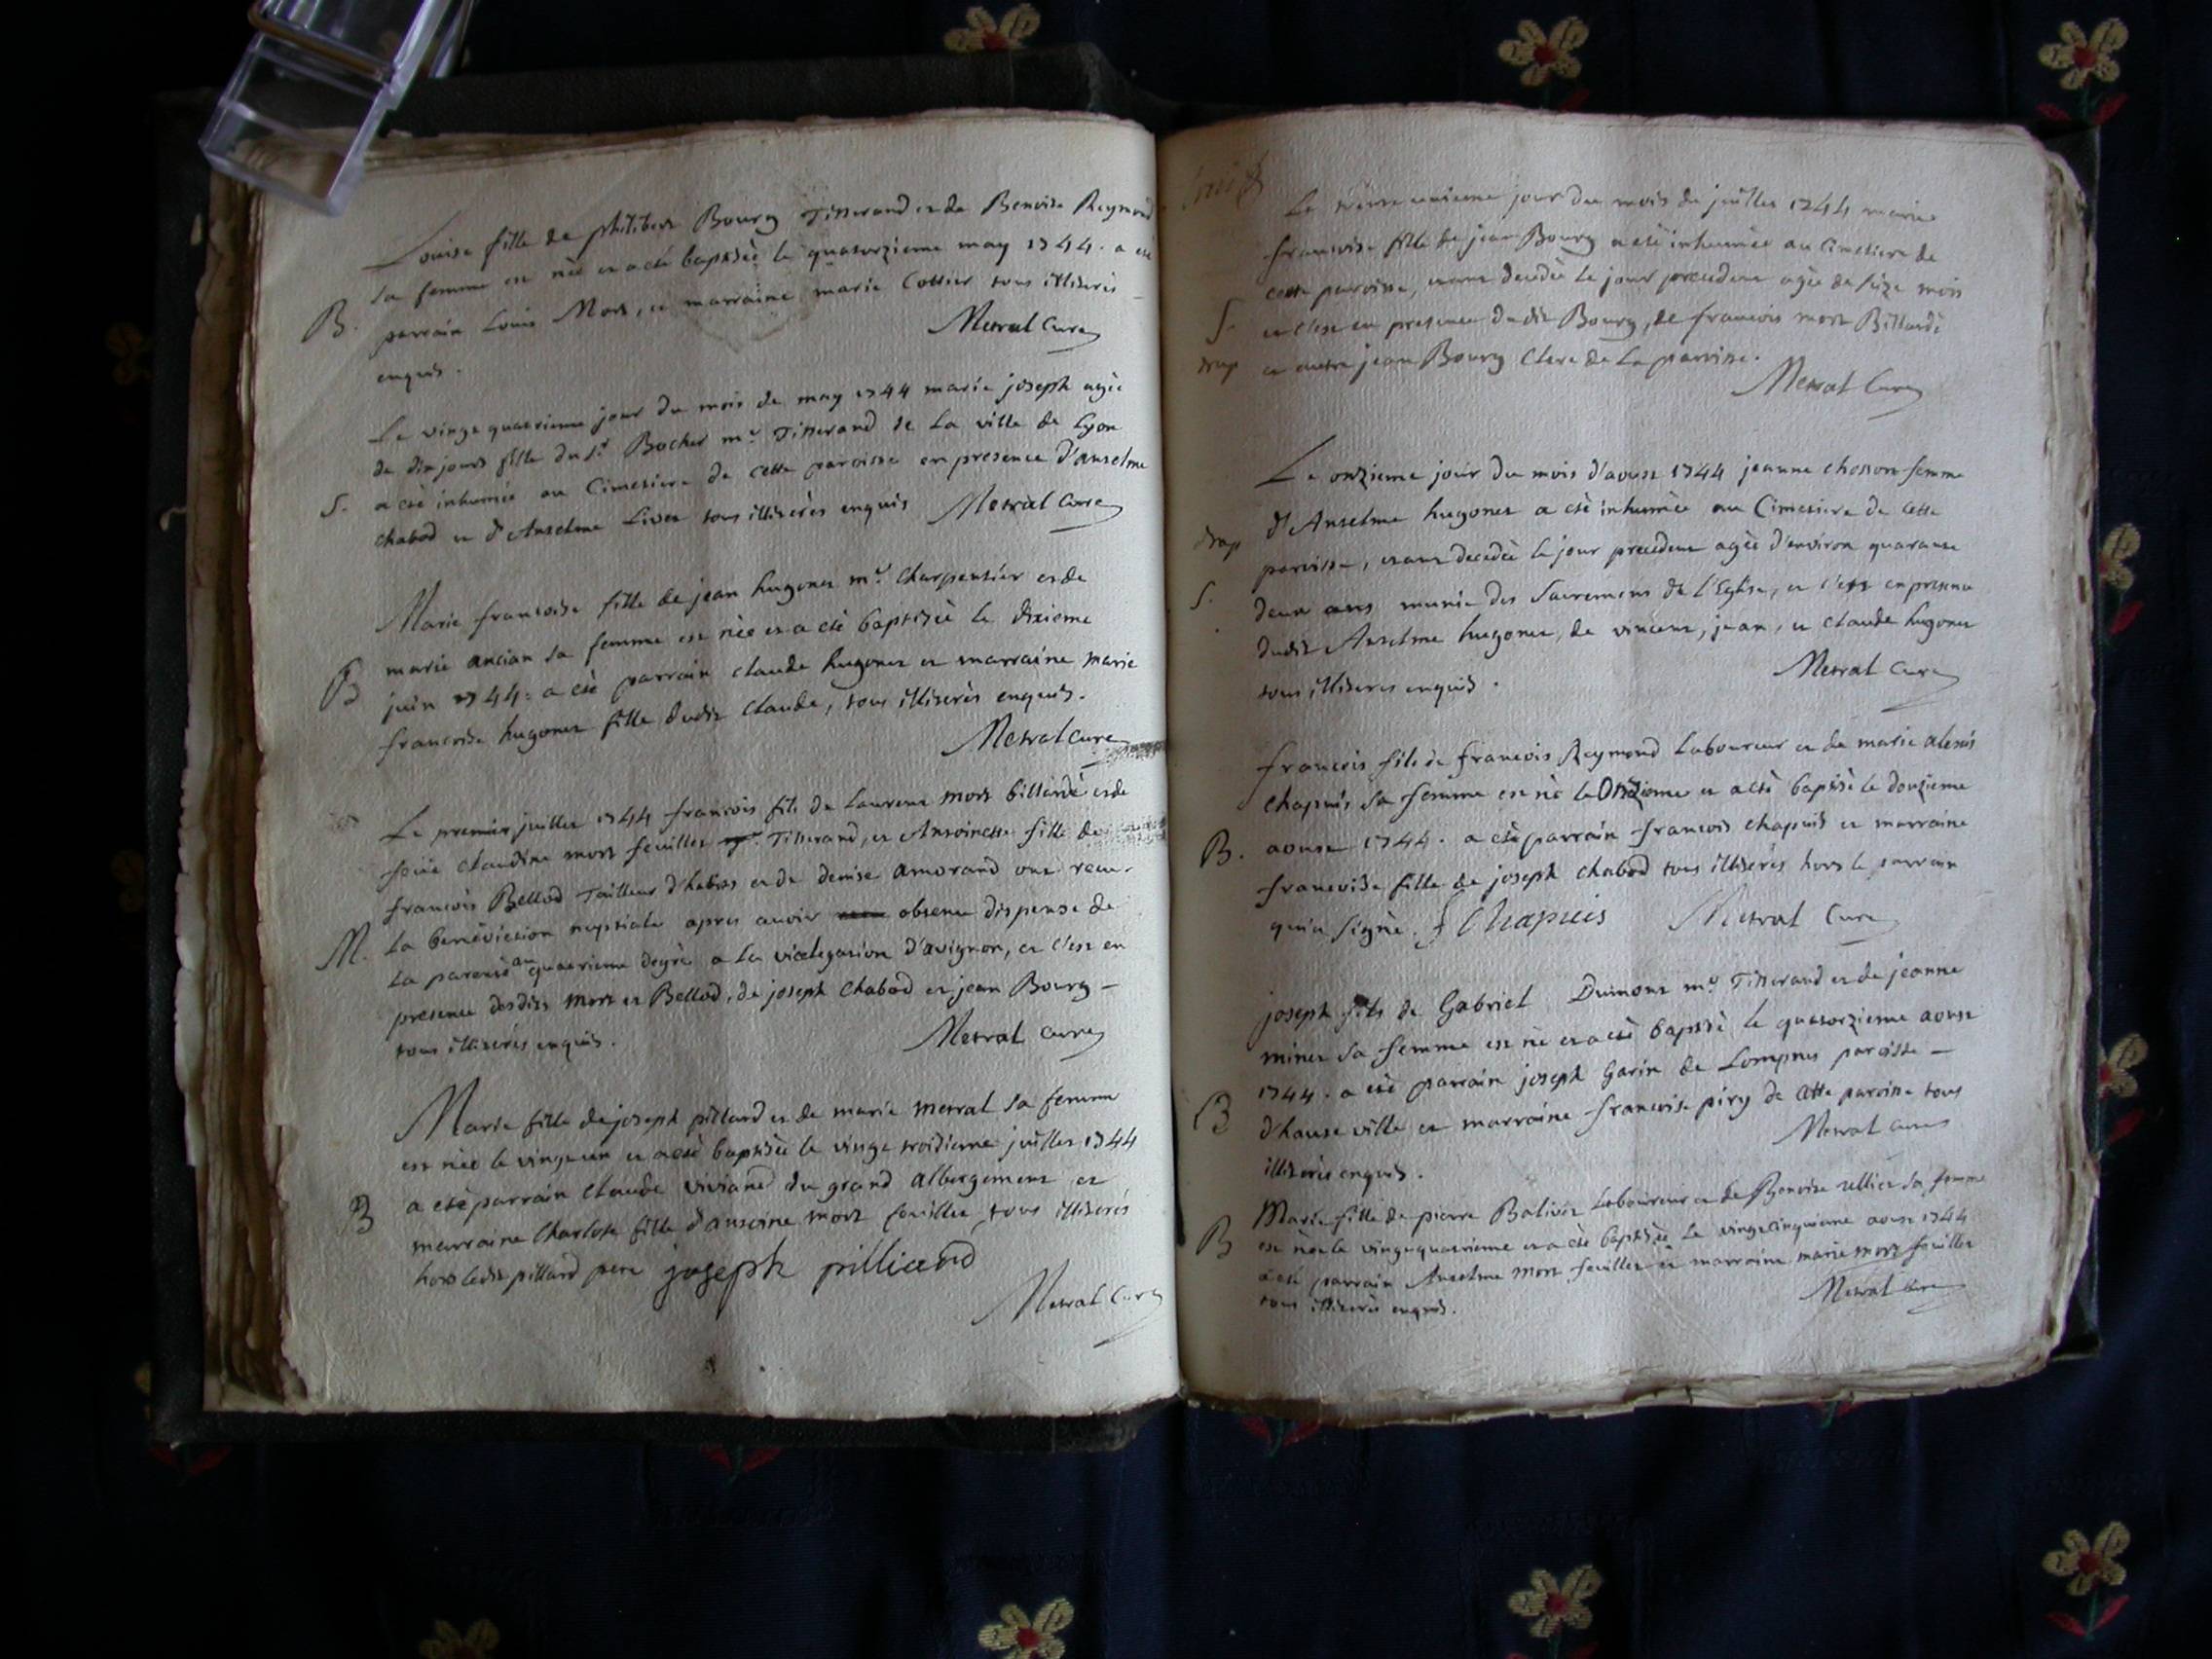 Louise fille de philibert Bourg Tisserand et de Benoite Reymond
sa femme est née et a eté baptisée le quatorzieme may 1744. a eté
B. parrain Louis Mort, et marraine marie Cottier tous illiterés
enquis.
Metral Curé
Le vingt quatrieme jour du mois de may 1744 marie joseph agée
de dix jours fille du Sr Bocher mr Tisserand de La ville de Lyon
S. a eté inhumée au Cimetiere de cette paroisse en presence d'anselme
chabod et d'Anselme Livet tous illiterés enquis Metral Curé
Marie francoise fille de jean hugonet mr Charpentier et de
marie ancian sa femme est née et a eté baptisée le dixieme
B juin 1744. a eté parrain claude hugonet et marraine marie
francoise hugonet fille dudit Claude, tous illiterés enquis.
Metral Curé
Le premier juillet 1744 francois fils de Laurent mort billiardé et de
feüe claudine mort feuillet Tisserand, et Antoinette fille de
francois Bellod Tailleur d'habits et de denise amorand ont recu
M. La benediction nuptiale apres avoir obtenu dispense de
La parenté au quatrieme degré a La vicelegation d'avignon, et c'est en
presence desdits mort et Bellod, de joseph Chabod et jean Bourg –
tous illiterés enquis.
Metral Curé
Marie fille de joseph pilliard et de marie metral sa femme
est née le vingt un et a eté baptisée le vingt troisieme juillet 1744
B a eté parrain Claude viviand du grand albergement et
marraine Charlote fille d'antoine mort feuillet, tous illiterés
hors ledit pilliard pere joseph pilliand
Metral Curé
Le trente unieme jour du mois de juillet 1744 marie
francoise fille de jean Bourg a eté inhumée au Cimetiere de
cette paroisse, etant decedée le jour precedent agée de seize mois
S. et c'est en presence dudit Bourg, de francois mort Billiardé
drap et autre jean Bourg Clerc de La paroisse.
Metral Curé
Le onzieme jour du mois d'aoust 1744 jeanne chosson femme
drap d'Anselme hugonet a eté inhumée au Cimetiere de cette
paroisse, etant decedée le jour precedent agée d'environ quarante
S. deux ans munie des Sacremens de l'Eglise, et c'est en presence
dudit Anselme hugonet, de vincent, jean, et claude hugonet
tous illiterés enquis.
Metral Curé
francois fils de francois Reymond Laboureur et de marie alexis
chapuis sa femme est né le Onzieme et a eté baptisé le douzieme
B. aoust 1744. a eté parrain francois chapuis et marraine
francoise fille de joseph chabod tous illiterés hors le parrain
qui a signé. f Chapuis Metral Curé
joseph fils de Gabriel Dumont mr Tisserand et de jeanne
minet sa femme est né et a eté baptisé le quatorzieme aoust
1744. a eté parrain joseph Garin de Lompnes paroisse –
B d'hauteville et marraine francoise piry de cette paroisse tous
illiterés enquis.
Metral Curé
Marie fille de pierre Balivet Laboureur et de Benoite sa femme
B est née le vingt quatrieme et a eté baptisée Le vingt cinquieme aoust 1744
a eté parrain Anselme mort feuillet et marraine marie mort feuillet
tous illiterés enquis.
Metral Curé